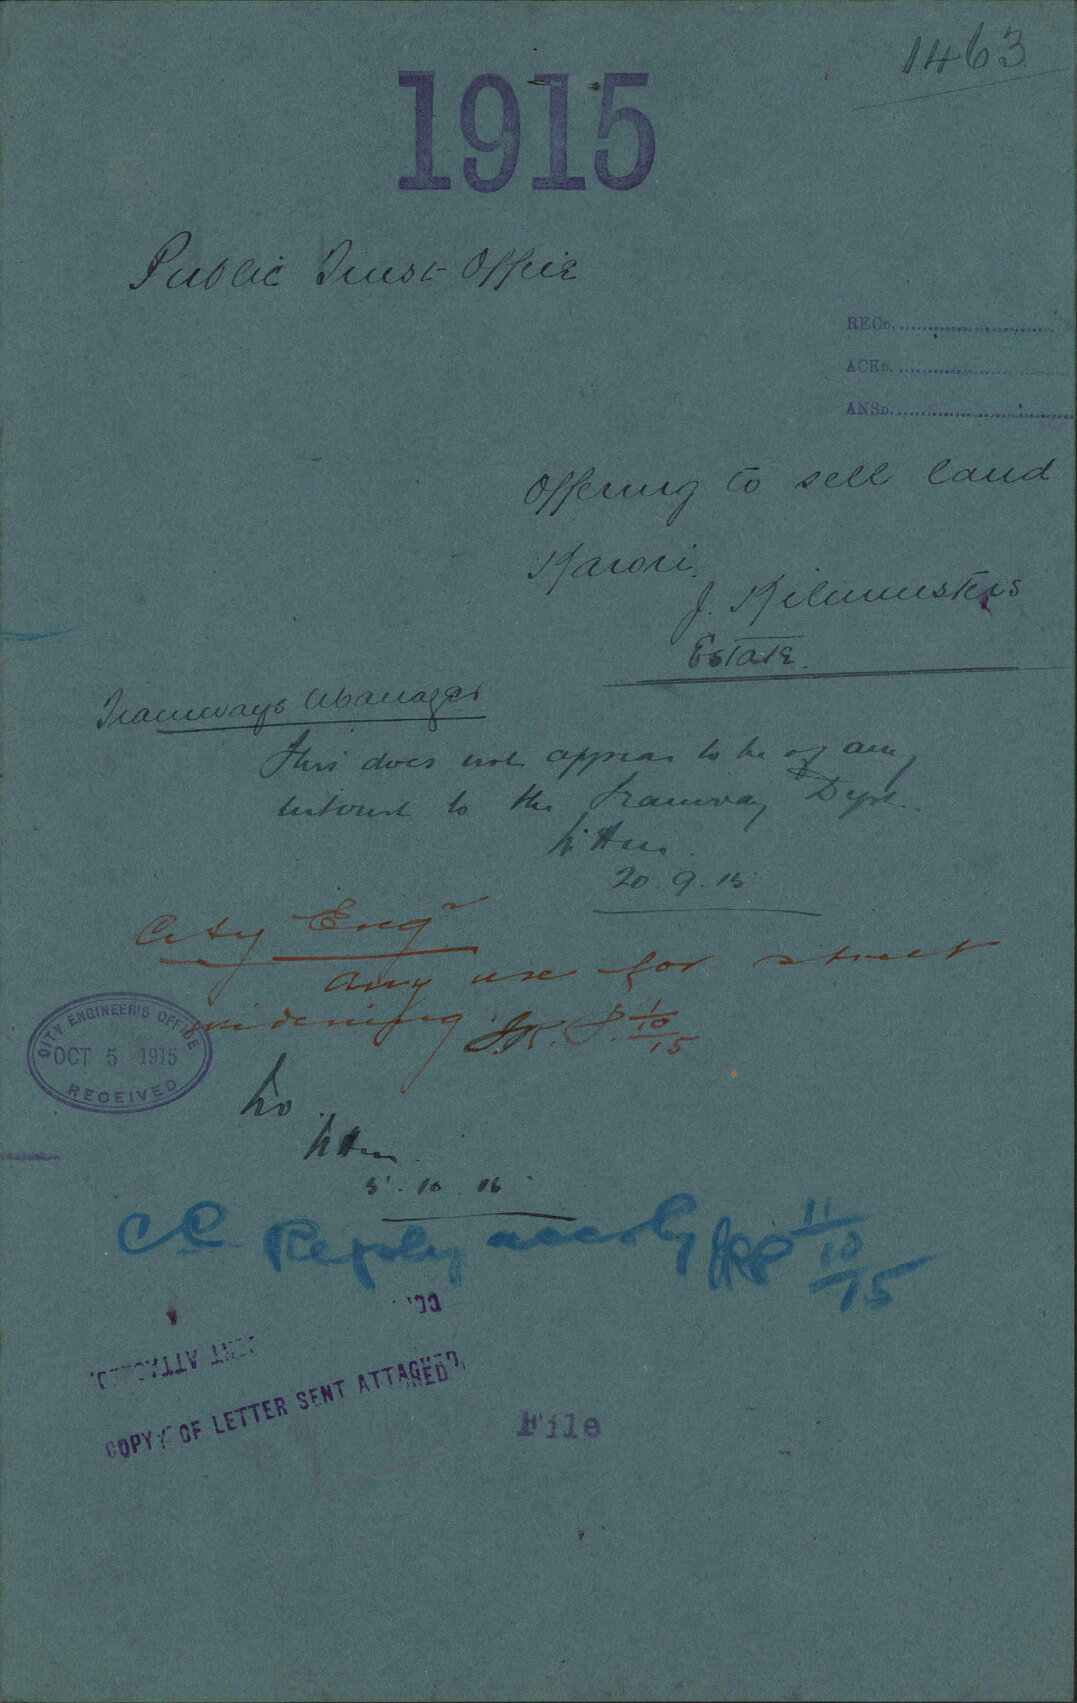 1463
1915
Public Trust Office
RECD.
ACKD.
ANSD.
Offering to sell land
Karori.
J. Kilminsters
Estate.
Tramways Manager
This does not appear to be of any
interest to the Tramway Dept.
20.9.15
City Engr
Any use for street
widening
J.R.P. 1/10/15
CITY ENGINEER'S OFFICE
OCT 5 1915
RECEIVED
No.
5.10.15
Reply accordly JRP 11/10/15
COPY OF LETTER SENT ATTACHED.
File